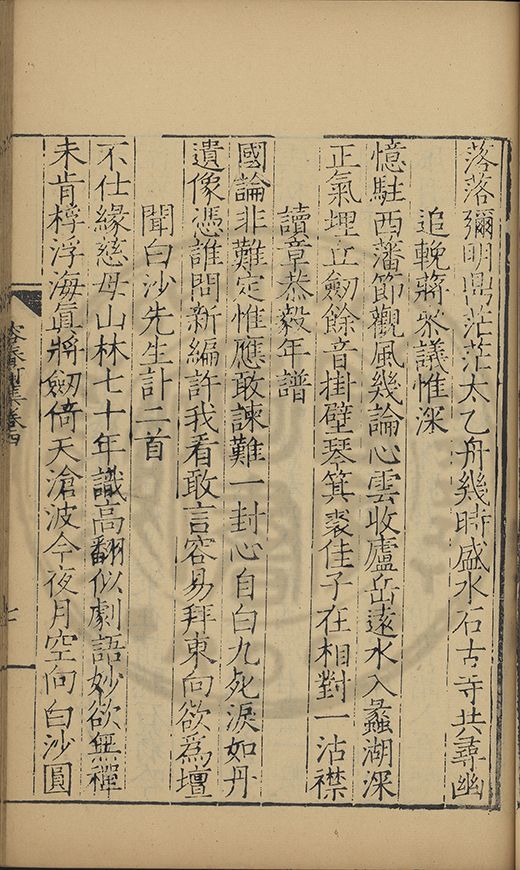 落落彌明鼎茫茫太乙舟幾時盛水石古寺共尋幽
追輓蔣叅議惟深
憶駐西藩節觀風幾論心雲收廬岳遠水入蠡湖深
正氣埋丘劒餘音掛壁琴箕裘佳子在相對一沾襟
讀章恭毅年譜
國論非難定惟應敢諫難一封心自白九死淚如丹
遺像憑誰問新編許我看敢言容易拜東向欲爲壇
聞白沙先生訃二首
不仕緣慈母山林七十年識高翻似劇語妙欲無禪
未肯桴浮海眞將劒倚天滄波今夜月空向白沙圓
集卷四
七